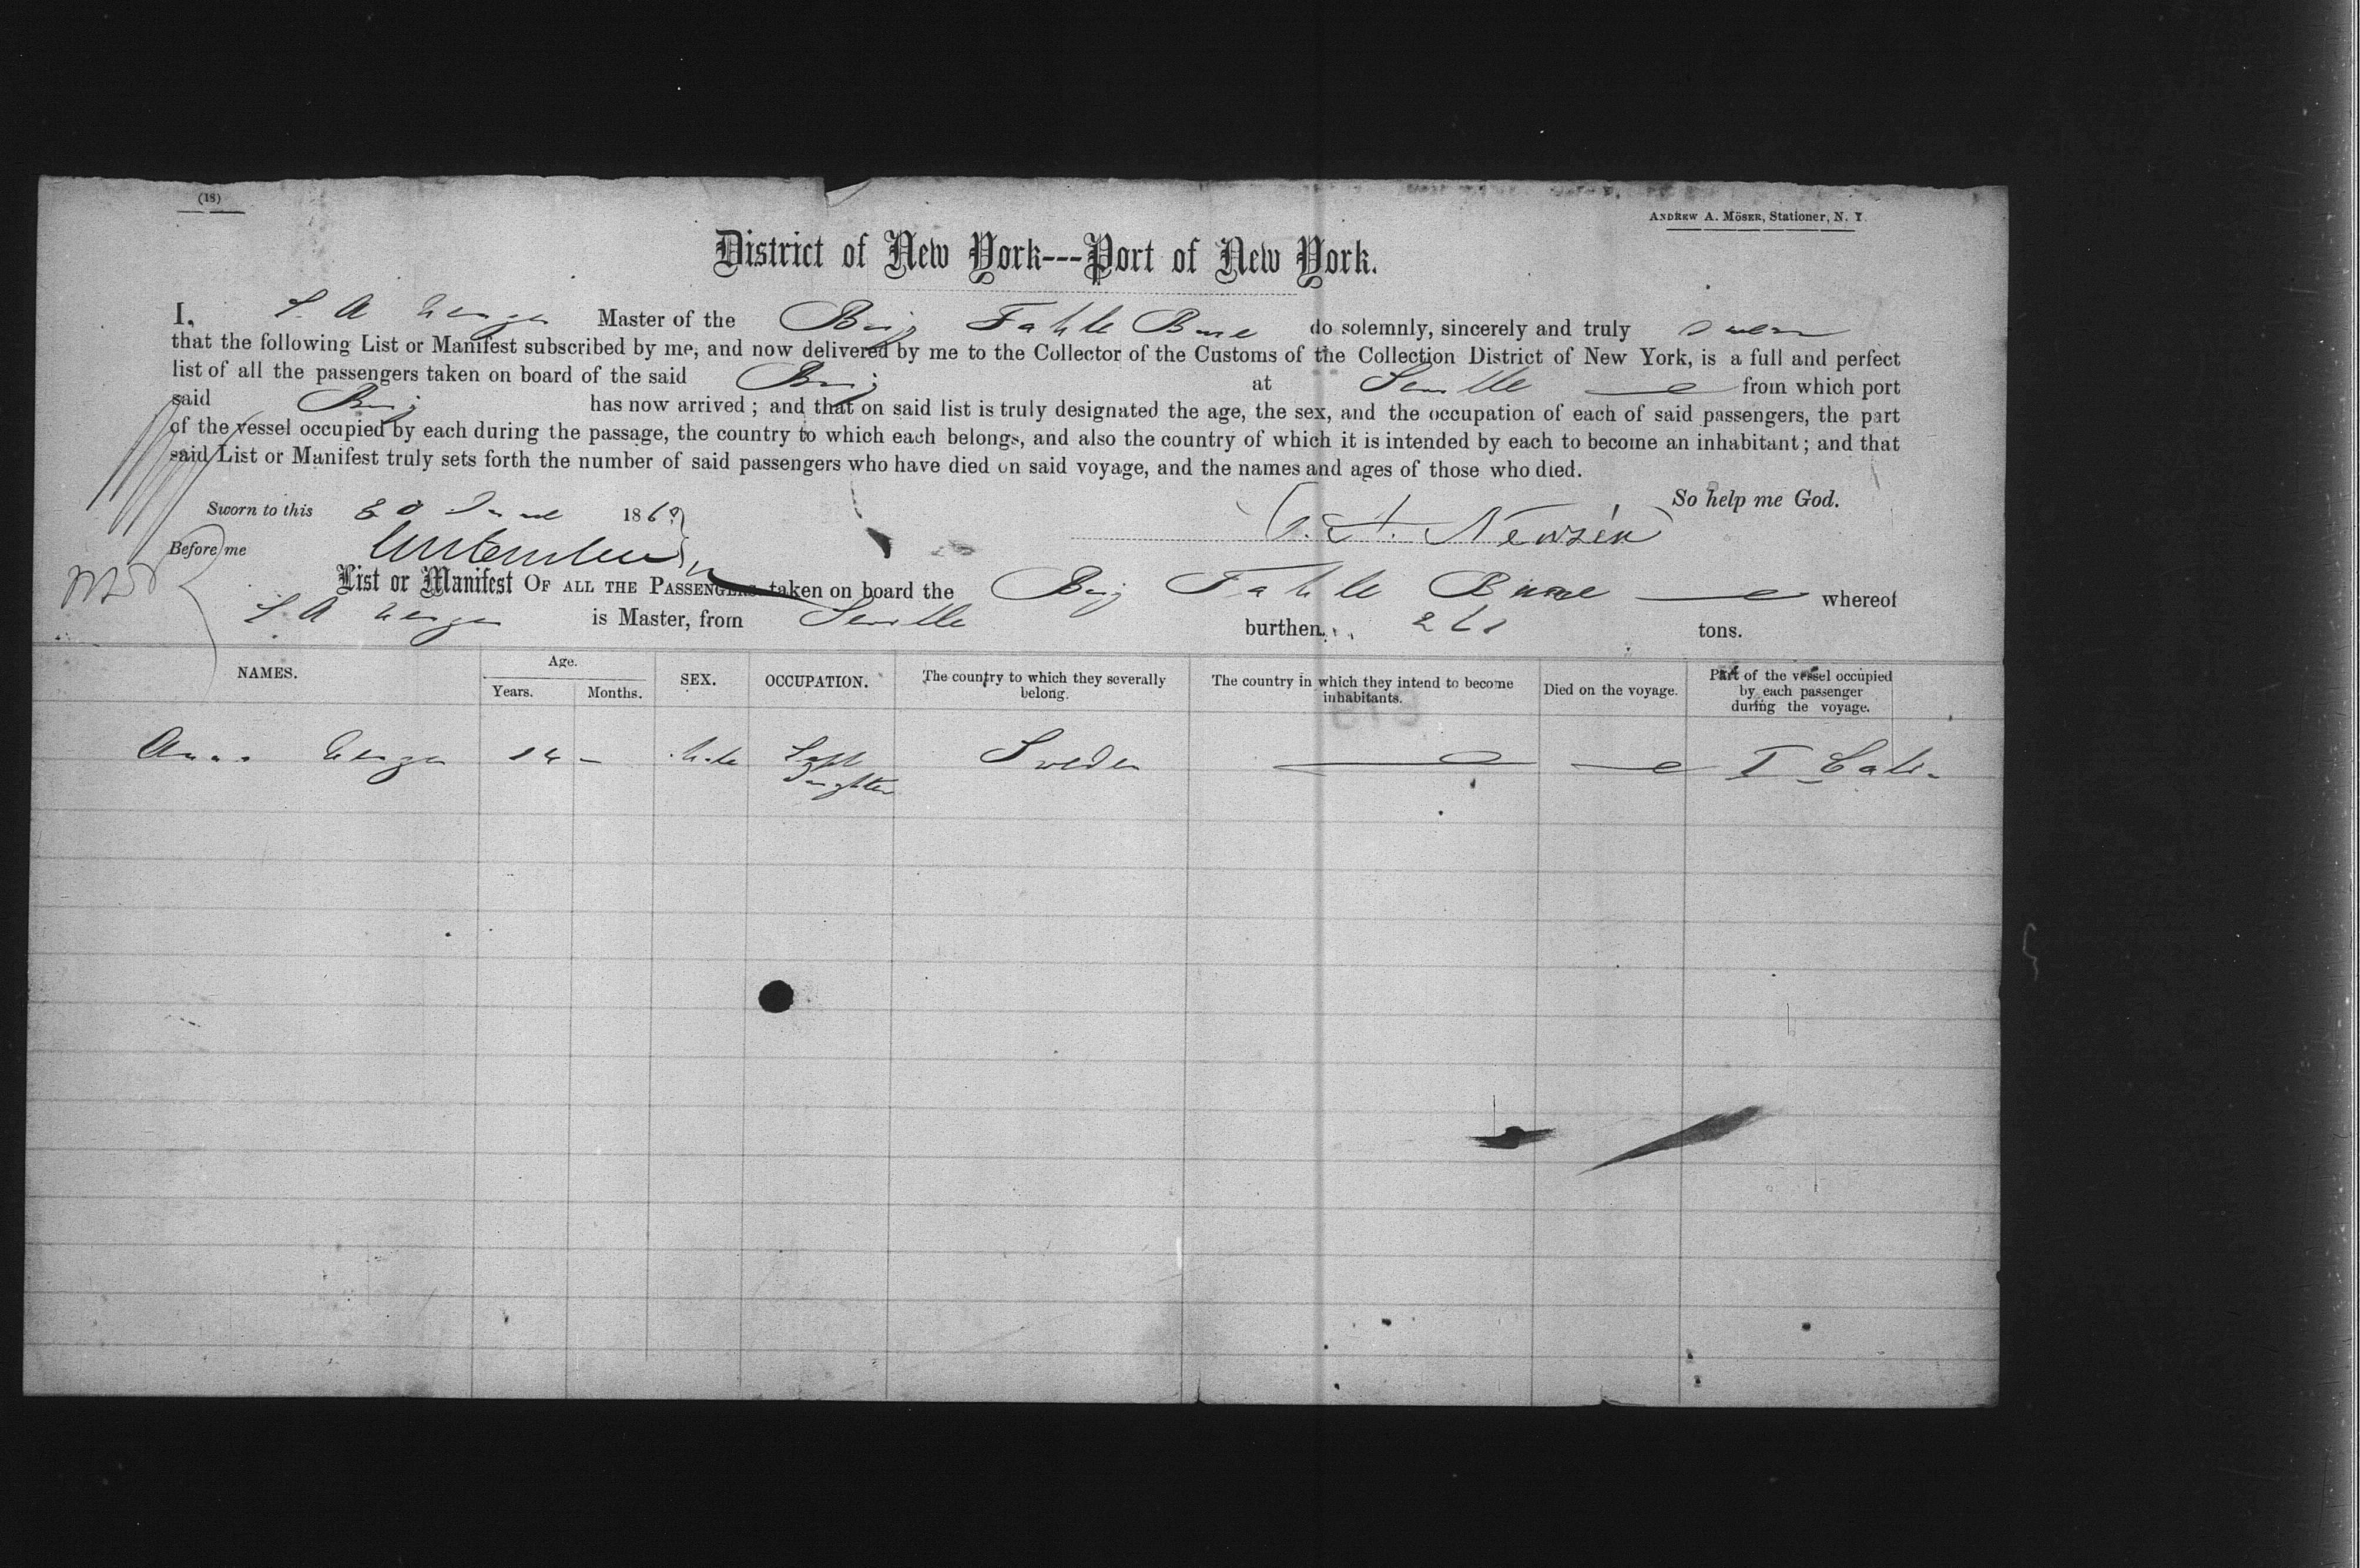 (18)
ANDREW A. MÖSER, Stationer, N. Y.
District of New York---Port of New York.
I, Master of the Brig do solemnly, sincerely and truly swear
that the following List or Manifest subscribed by me, and now delivered by me to the Collector of the Customs of the Collection District of New York, is a full and perfect
list of all the passengers taken on board of the said Brig at Seville from which port
said Brig has now arrived; and that on said list is truly designated the age, the sex, and the occupation of each of said passengers, the part
of the vessel occupied by each during the passage, the country to which each belongs, and also the country of which it is intended by each to become an inhabitant; and that
said List or Manifest truly sets forth the number of said passengers who have died on said voyage, and the names and ages of those who died.
So help me God.
Sworn to this 30 June 1869
Before me
List or Manifest OF ALL THE PASSENGERS taken on board the Brig whereof
is Master, from Seville burthen tons.
NAMES. Age. Years. Months. SEX. OCCUPATION. The country to which they severally belong. The country in which they intend to become inhabitants. Died on the voyage. Part of the vessel occupied by each passenger during the voyage.
Anna 14 – Sweden
Daughter